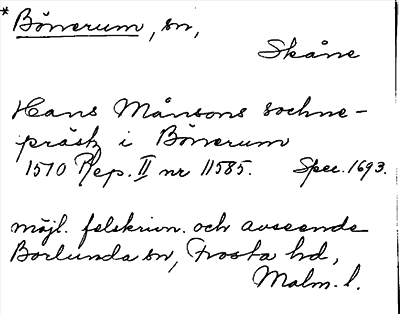 * Bönerum, sn,
Skåne
Hans Månsons sochne-
präst i Bönerum
1510 Rep. II nr 11585. Spec. 1693.
möjl. felskrivn. och avseende
Borlunda sn, Frosta hd,
Malm. l.